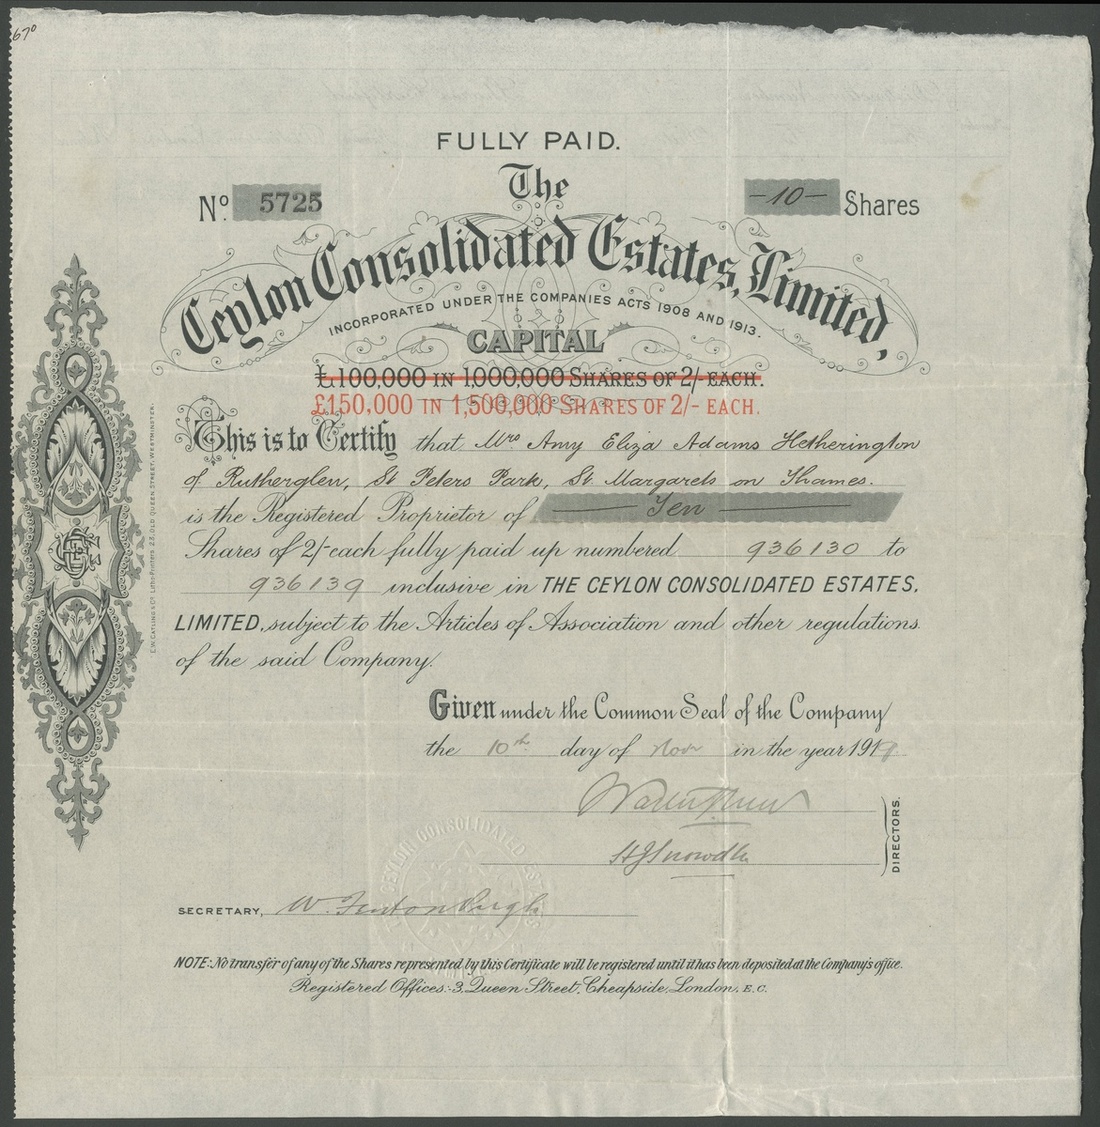 670
FULLY PAID.
The
No. 5725
-10- Shares
Ceylon Consolidated Estates, Limited,
INCORPORATED UNDER THE COMPANIES ACTS 1908 AND 1913.
CAPITAL
£100,000 IN 1,000,000 SHARES OF 2/- EACH.
£150,000 IN 1,500,000 SHARES OF 2/- EACH.
This is to Certify that Mrs Amy Eliza Adams Hetherington
of Rutherglen, St Peters Park, St Margarets on Thames.
is the Registered Proprietor of Ten
Shares of 2/- each fully paid up numbered 936130 to
936139 inclusive in THE CEYLON CONSOLIDATED ESTATES,
LIMITED, subject to the Articles of Association and other regulations
of the said Company.
Given under the Common Seal of the Company
the 10th day of Novr in the year 191
DIRECTORS.
SECRETARY, W. Fenton Pugh
NOTE:- No transfer of any of the Shares represented by this Certificate will be registered until it has been deposited at the Company's office.
Registered Offices:- 3, Queen Street, Cheapside, London, E.C.
E.W. CATLING & Co. Litho Printers 23, OLD QUEEN STREET, WESTMINSTER.
CEYLON CONSOLIDATED